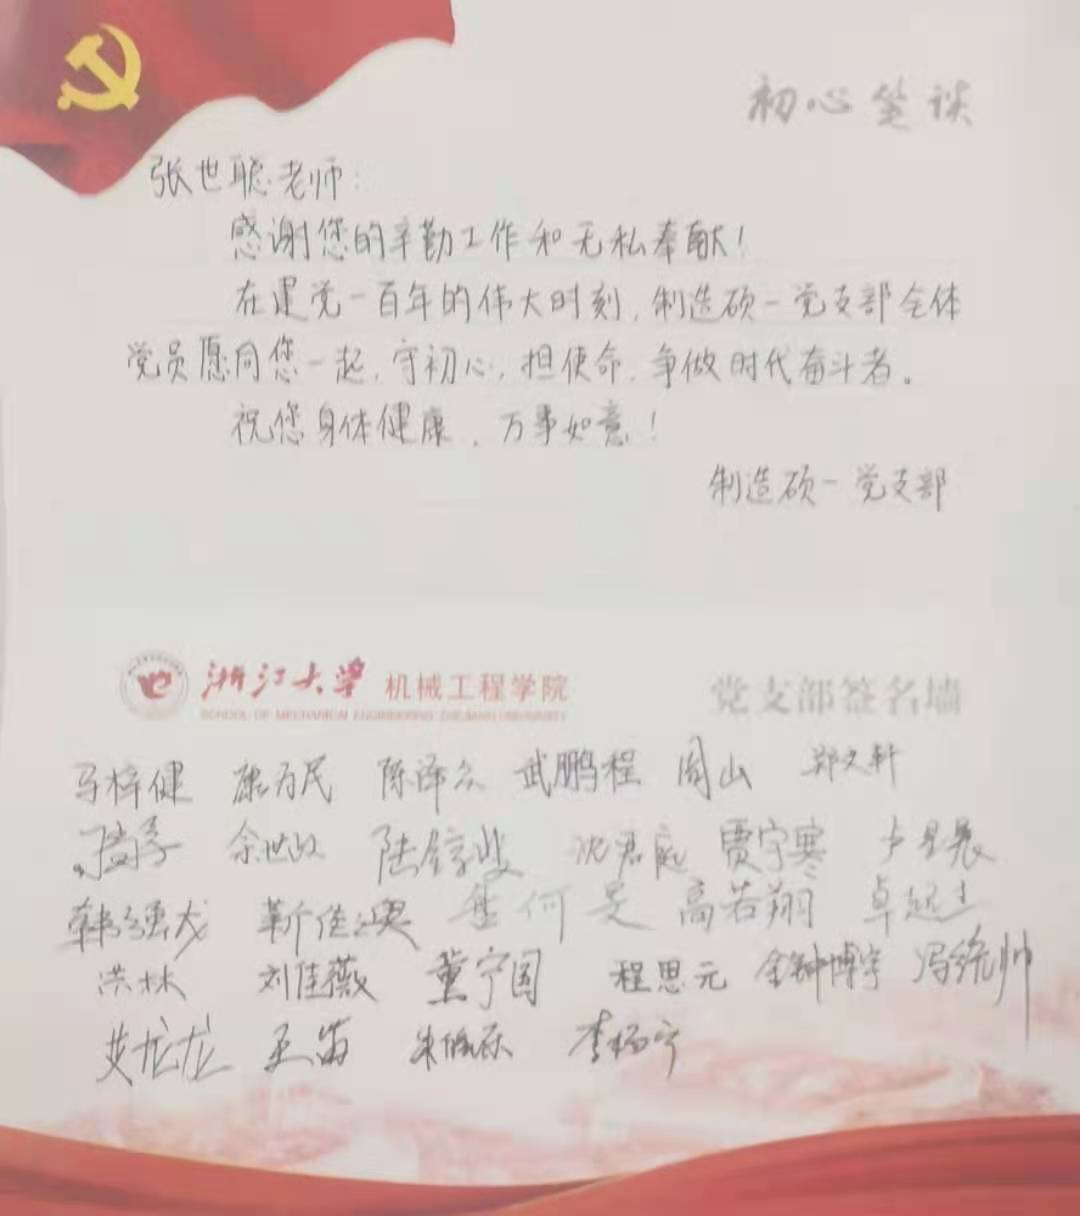 初心笔谈
张世聪老师：
感谢您的辛勤工作和无私奉献！
在建党一百年的伟大时刻，制造硕一党支部全体
党员愿同您一起，守初心，担使命，争做时代奋斗者。
祝您身体健康，万事如意！
制造硕一党支部
浙江大学 机械工程学院 党支部签名墙
SCHOOL OF MECHANICAL ENGINEERING ZHEJIANG UNIVERSITY
马梓健 康为民 陈泽众 武鹏程 周山 郑文轩
余世政 沈君庭 贾宁寒 卢星辰
韩强龙 靳佳澳 高若翔 卓超杰
洪林 刘佳薇 董宁国 程思元 金钟博宇 冯统帅
艾龙龙 王笛 李杨宁